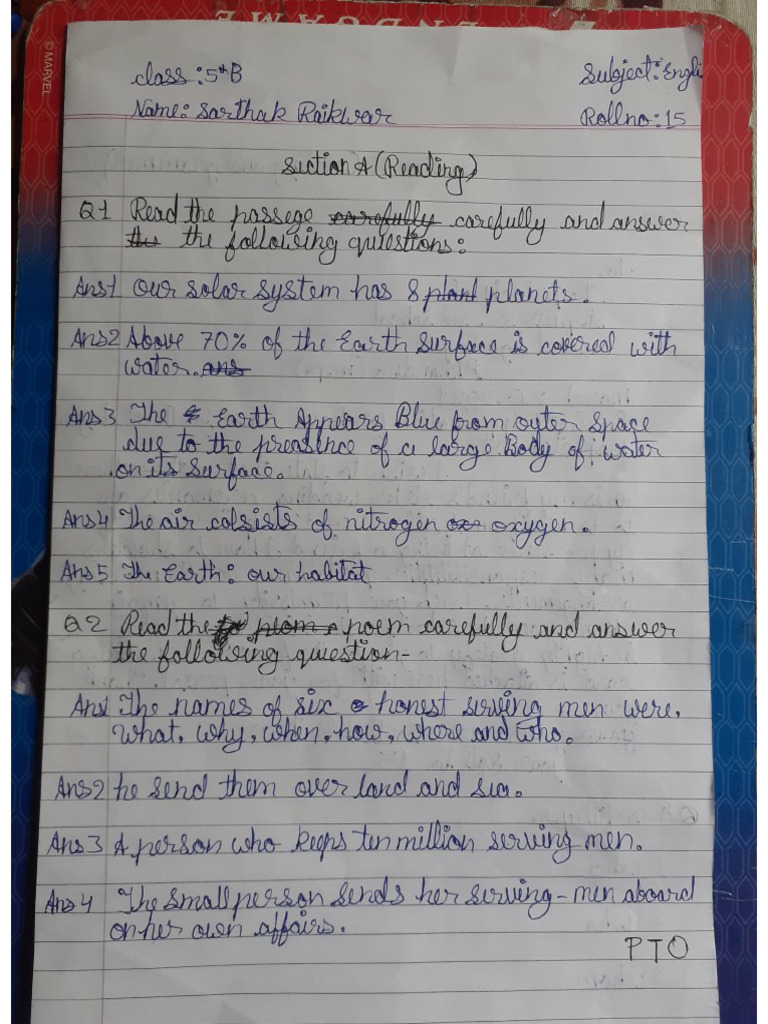 © MARVEL
Class : 5th B
Subject: Engli
Name: Sarthak Raikwar
Roll no : 15
Section A (Reading)
Q1 Read the passege carefully carefully and answer
the the following questions :
Ans1 Our solar system has 8 plant planets.
Ans2 Above 70% of the Earth surface is covered with
water. ans
Ans 3 The Earth Appears Blue from outer space
due to the preasence of a large Body of water
on its surface.
Ans4 The air colsists of nitrogen oxygen.
Ans 5 The Earth : our habitat
Q2 Read the poem carefully and answer
the following question-
Ans1 The names of six honest serving men were,
What, why, when, how, where and who.
Ans2 he send them over land and sea.
Ans 3 A person who keeps ten million serving men.
Ans 4 The small person sends her serving-men aboard
on her own affairs.
PTO